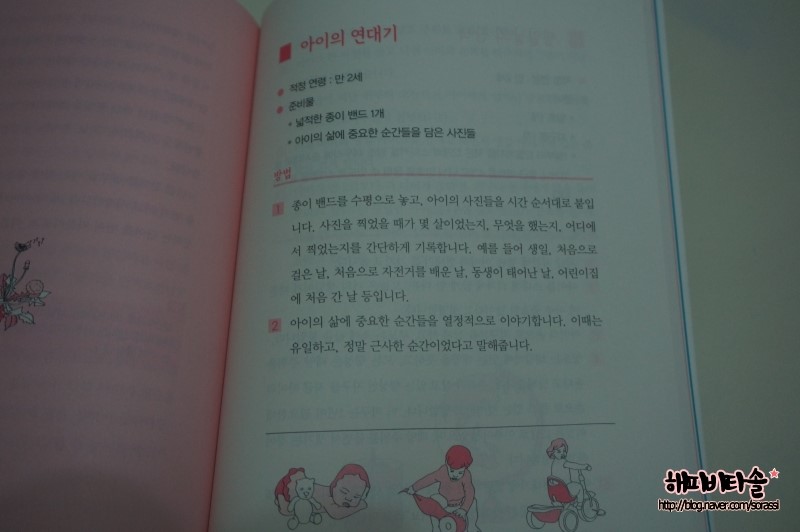 아이의 연대기
적정 연령 : 만 2세
준비물
넓적한 종이 밴드 1개
아이의 삶에 중요한 순간들을 담은 사진들
방법
1 종이 밴드를 수평으로 놓고, 아이의 사진들을 시간 순서대로 붙입
니다. 사진을 찍었을 때가 몇 살이었는지, 무엇을 했는지, 어디에
서 찍었는지를 간단하게 기록합니다. 예를 들어 생일, 처음으로
걸은 날, 처음으로 자전거를 배운 날, 동생이 태어난 날, 어린이집
에 처음 간 날 등입니다.
2 아이의 삶에 중요한 순간들을 열정적으로 이야기합니다. 이때는
유일하고, 정말 근사한 순간이었다고 말해줍니다.
해피바타솔
http://blog.naver.com/sorassi